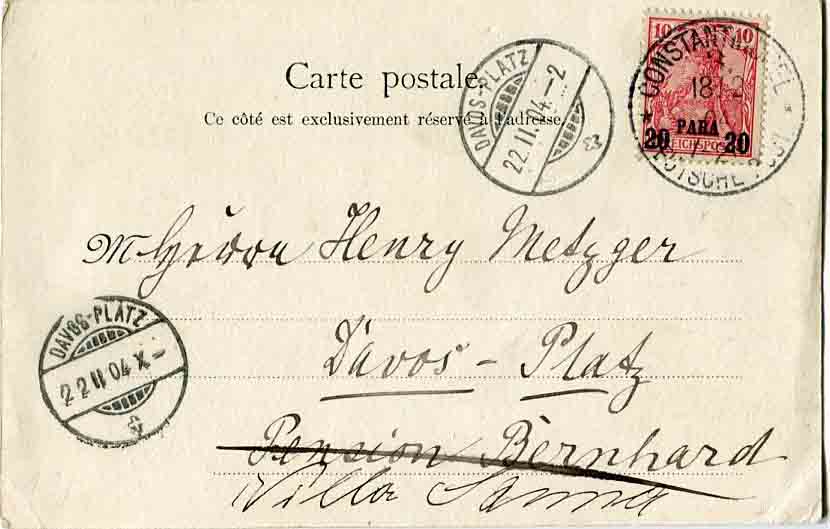 Carte postale.
Ce côté est exclusivement réservé à l'adresse.
DAVOS-PLATZ
22.II.04.-2
10 10
20 PARA 20
REICHSPOST
CONSTANTINOPEL
18 2
DEUTSCHE POST
M Herrn Henry Metzger
Davos - Platz
Pension Bernhard
Villa Sanna
DAVOS-PLATZ
22 II 04 X-